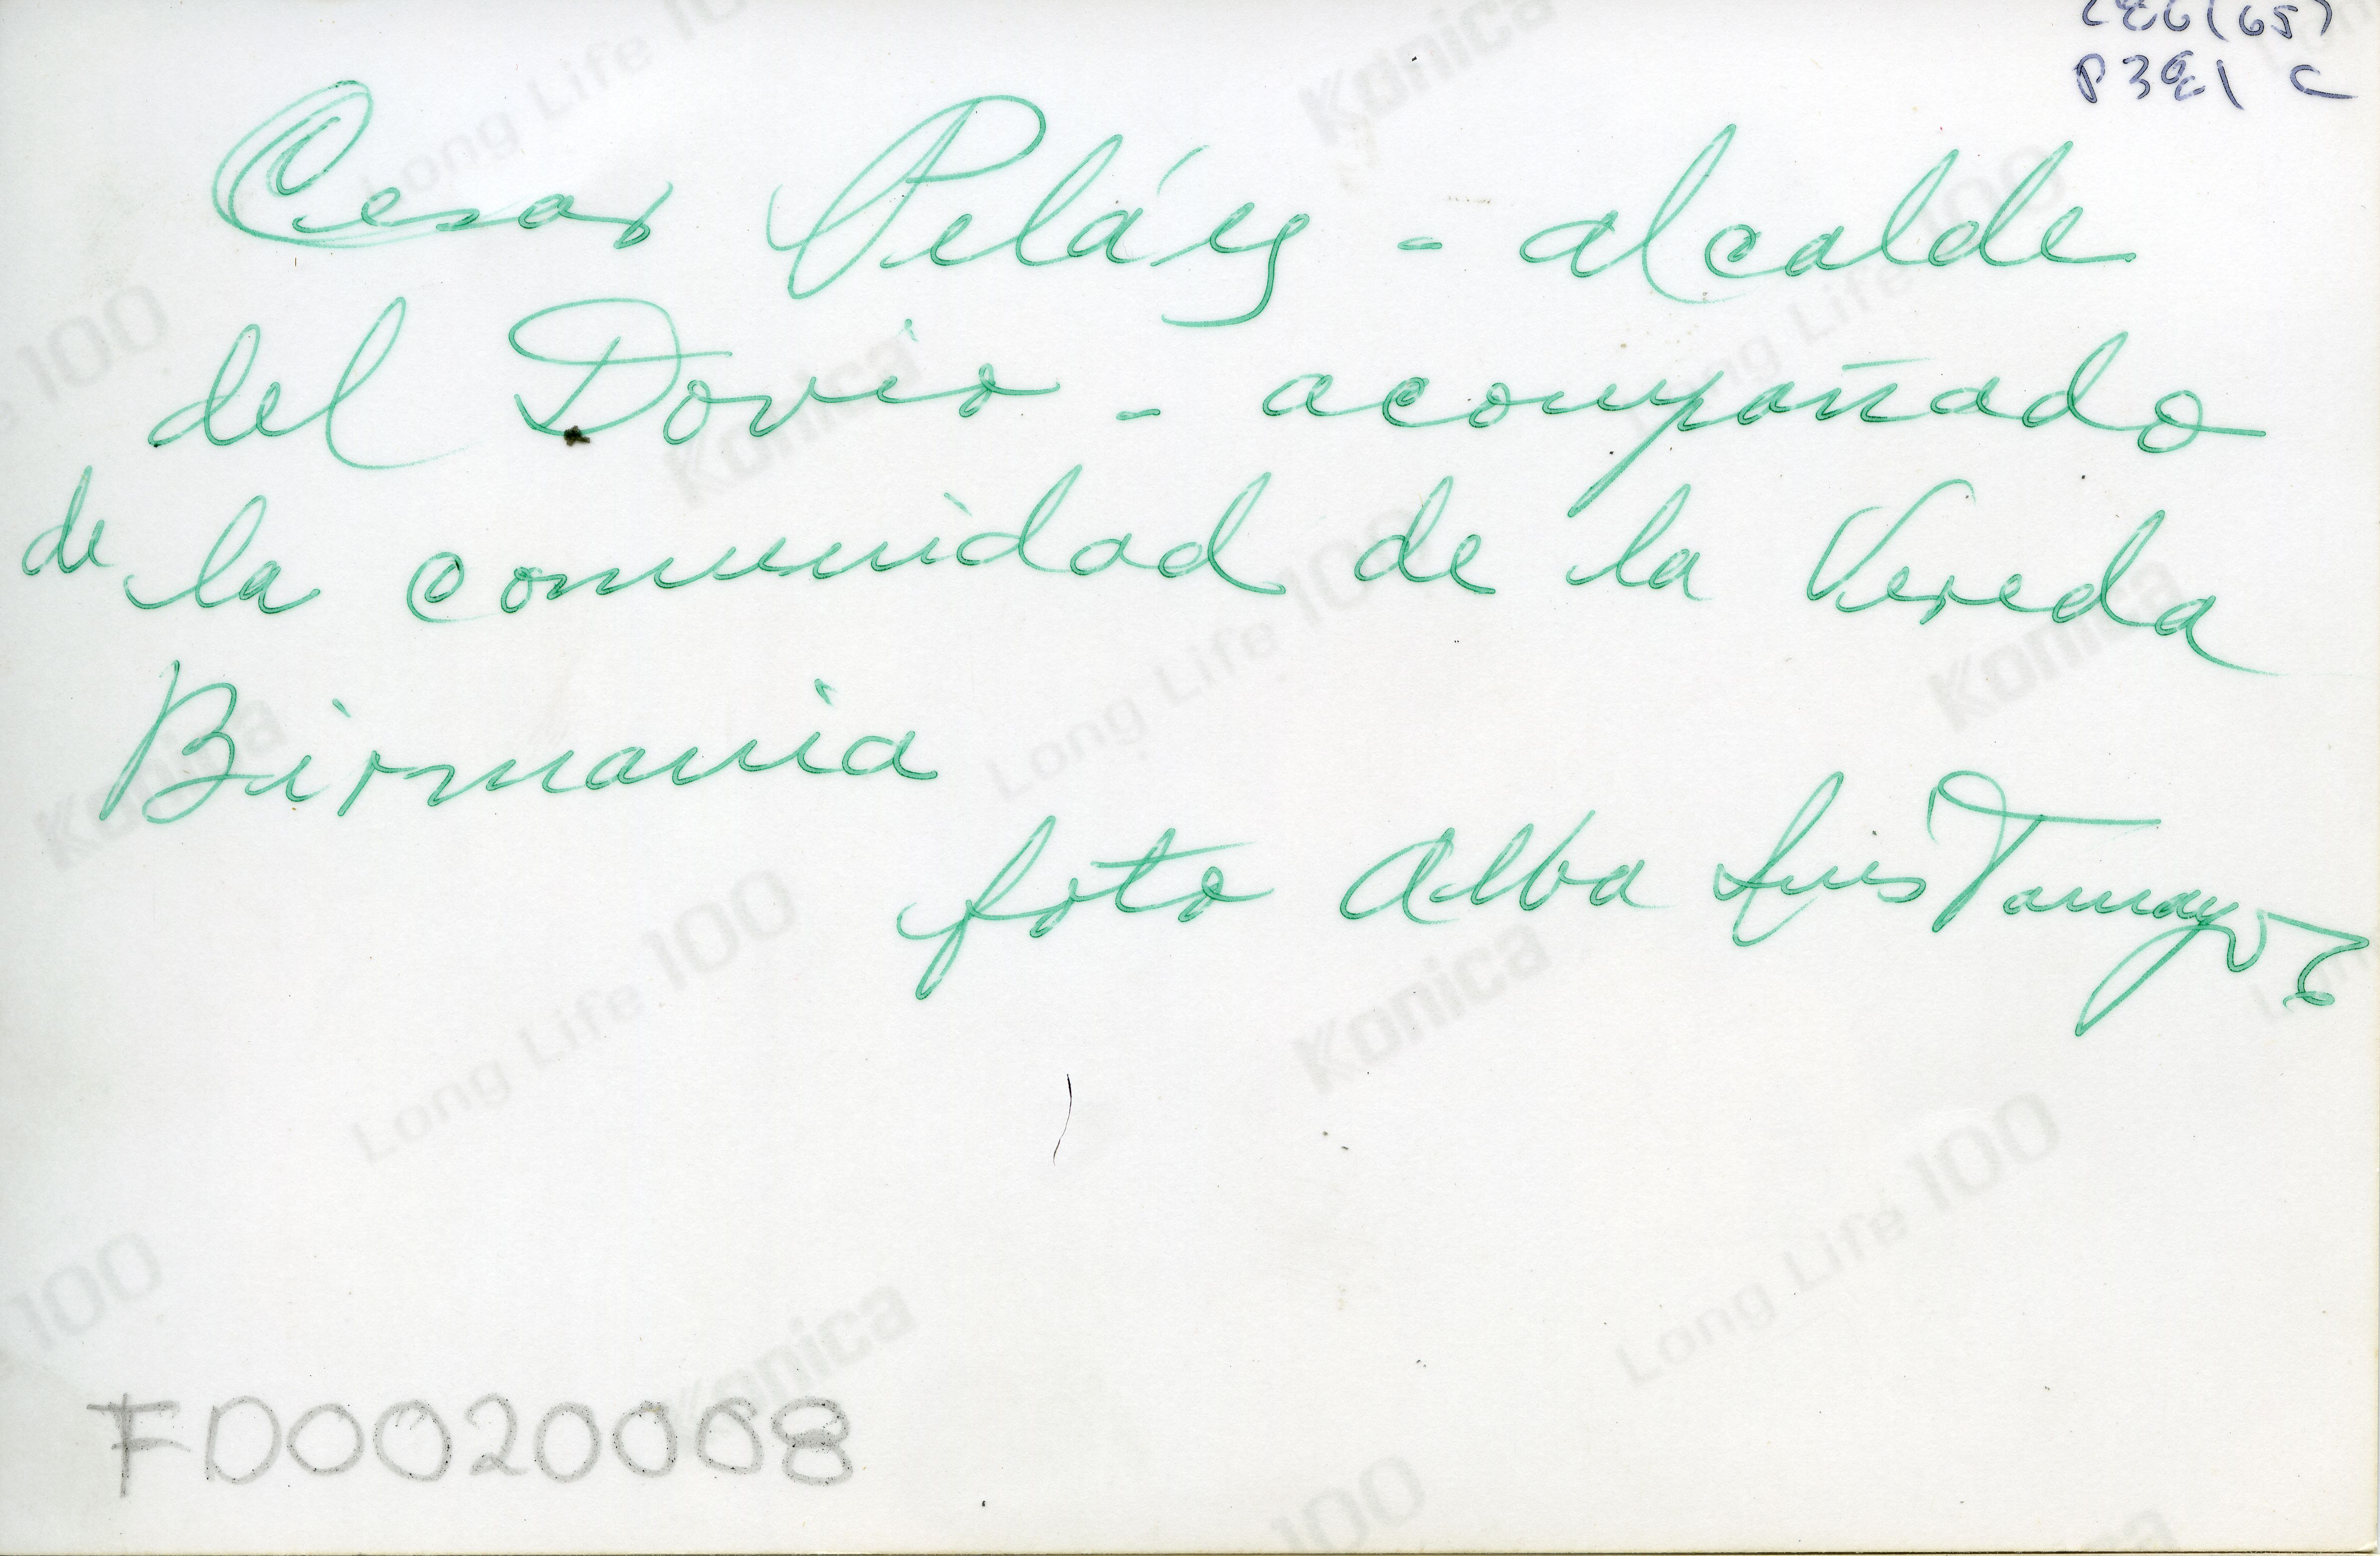 P381 C
Cesar Peláez - alcalde
del Dovio - acompañado
de la comunidad de la Vereda
Birmania
foto Alba Luis Tamayo
FD0020008
Konica
Long Life 100